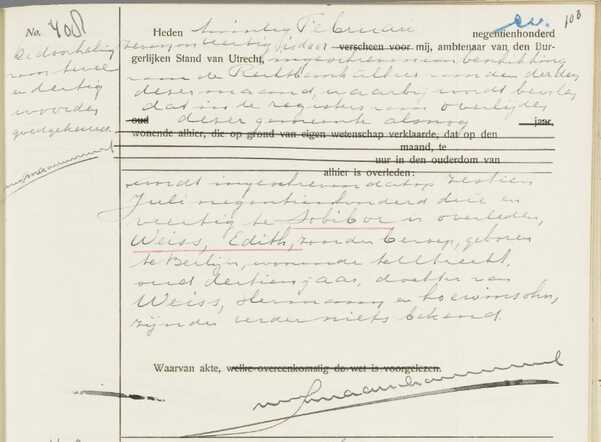 No. 408
108
Heden twintig Februari negentienhonderd
zeven en veertig is door verscheen voor mij, ambtenaar van den Bur-
gerlijken Stand van Utrecht, ingeschreven een beschikking
van de Rechtbank alhier van den derden
dezer maand, waarbij wordt bevolen
dat in de registers van overlijden
oud dezer gemeente alsnog jaar,
wonende alhier, die op grond van eigen wetenschap verklaarde, dat op den
maand, te
uur in den ouderdom van
alhier is overleden:
wordt ingeschreven dat op zestien
Juli negentienhonderd drie en
veertig te Sobibor is overleden,
Weiss, Edith, zonder beroep, geboren
te Berlijn, wonende te Utrecht,
oud dertien jaar, dochter van
Weiss, Hermann en
zijnde verder niets bekend.
Waarvan akte, welke overeenkomstig de wet is voorgelezen.
De doorhaling
van twee
en dertig
woorden
goedgekeurd.